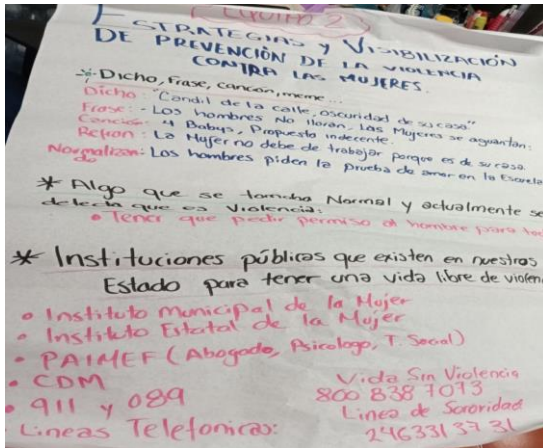 Equipo 2
Estrategias y Visibilización
DE PREVENCIÓN DE LA VIOLENCIA
CONTRA LAS MUJERES.
* Dicho, Frase, canción, meme...
Dicho: "Candil de la calle, oscuridad de su casa"
Frase: - Los hombres No lloran, Las Mujeres se aguantan:
Canción: 4 Babys, Propuesta indecente.
Refran: La Mujer no debe de trabajar porque es de su casa.
Normalizan: Los hombres piden la prueba de amor en la Escuela
do
* Algo que se tomaba Normal y actualmente se
detecta que es Violencia:
• Tener que pedir permiso al hombre para
* Instituciones públicas que existen en nuestros
Estado para tener una vida libre de violen
• Instituto municipal de la Mujer
• Instituto Estatal de la Mujer
• PAIMEF (Abogado, Psicologo, T. Social)
• CDM
• 911 y 089
Lineas Telefonicas:
Vida Sin Violencia
800 838 7073
Linea de Sororidad
2463313731